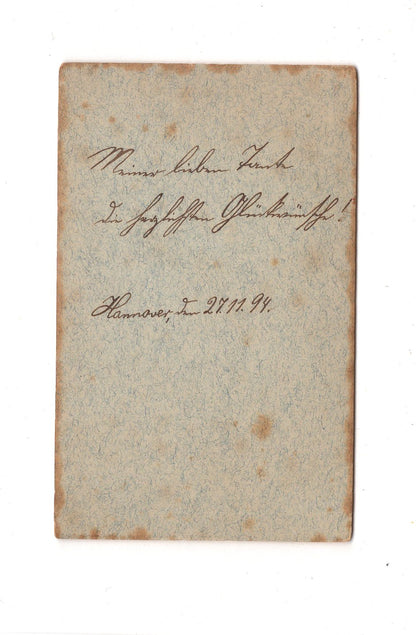 Meiner lieben Tante
die herzlichsten Glückwünsche!
Hannover, den 27.11.94.